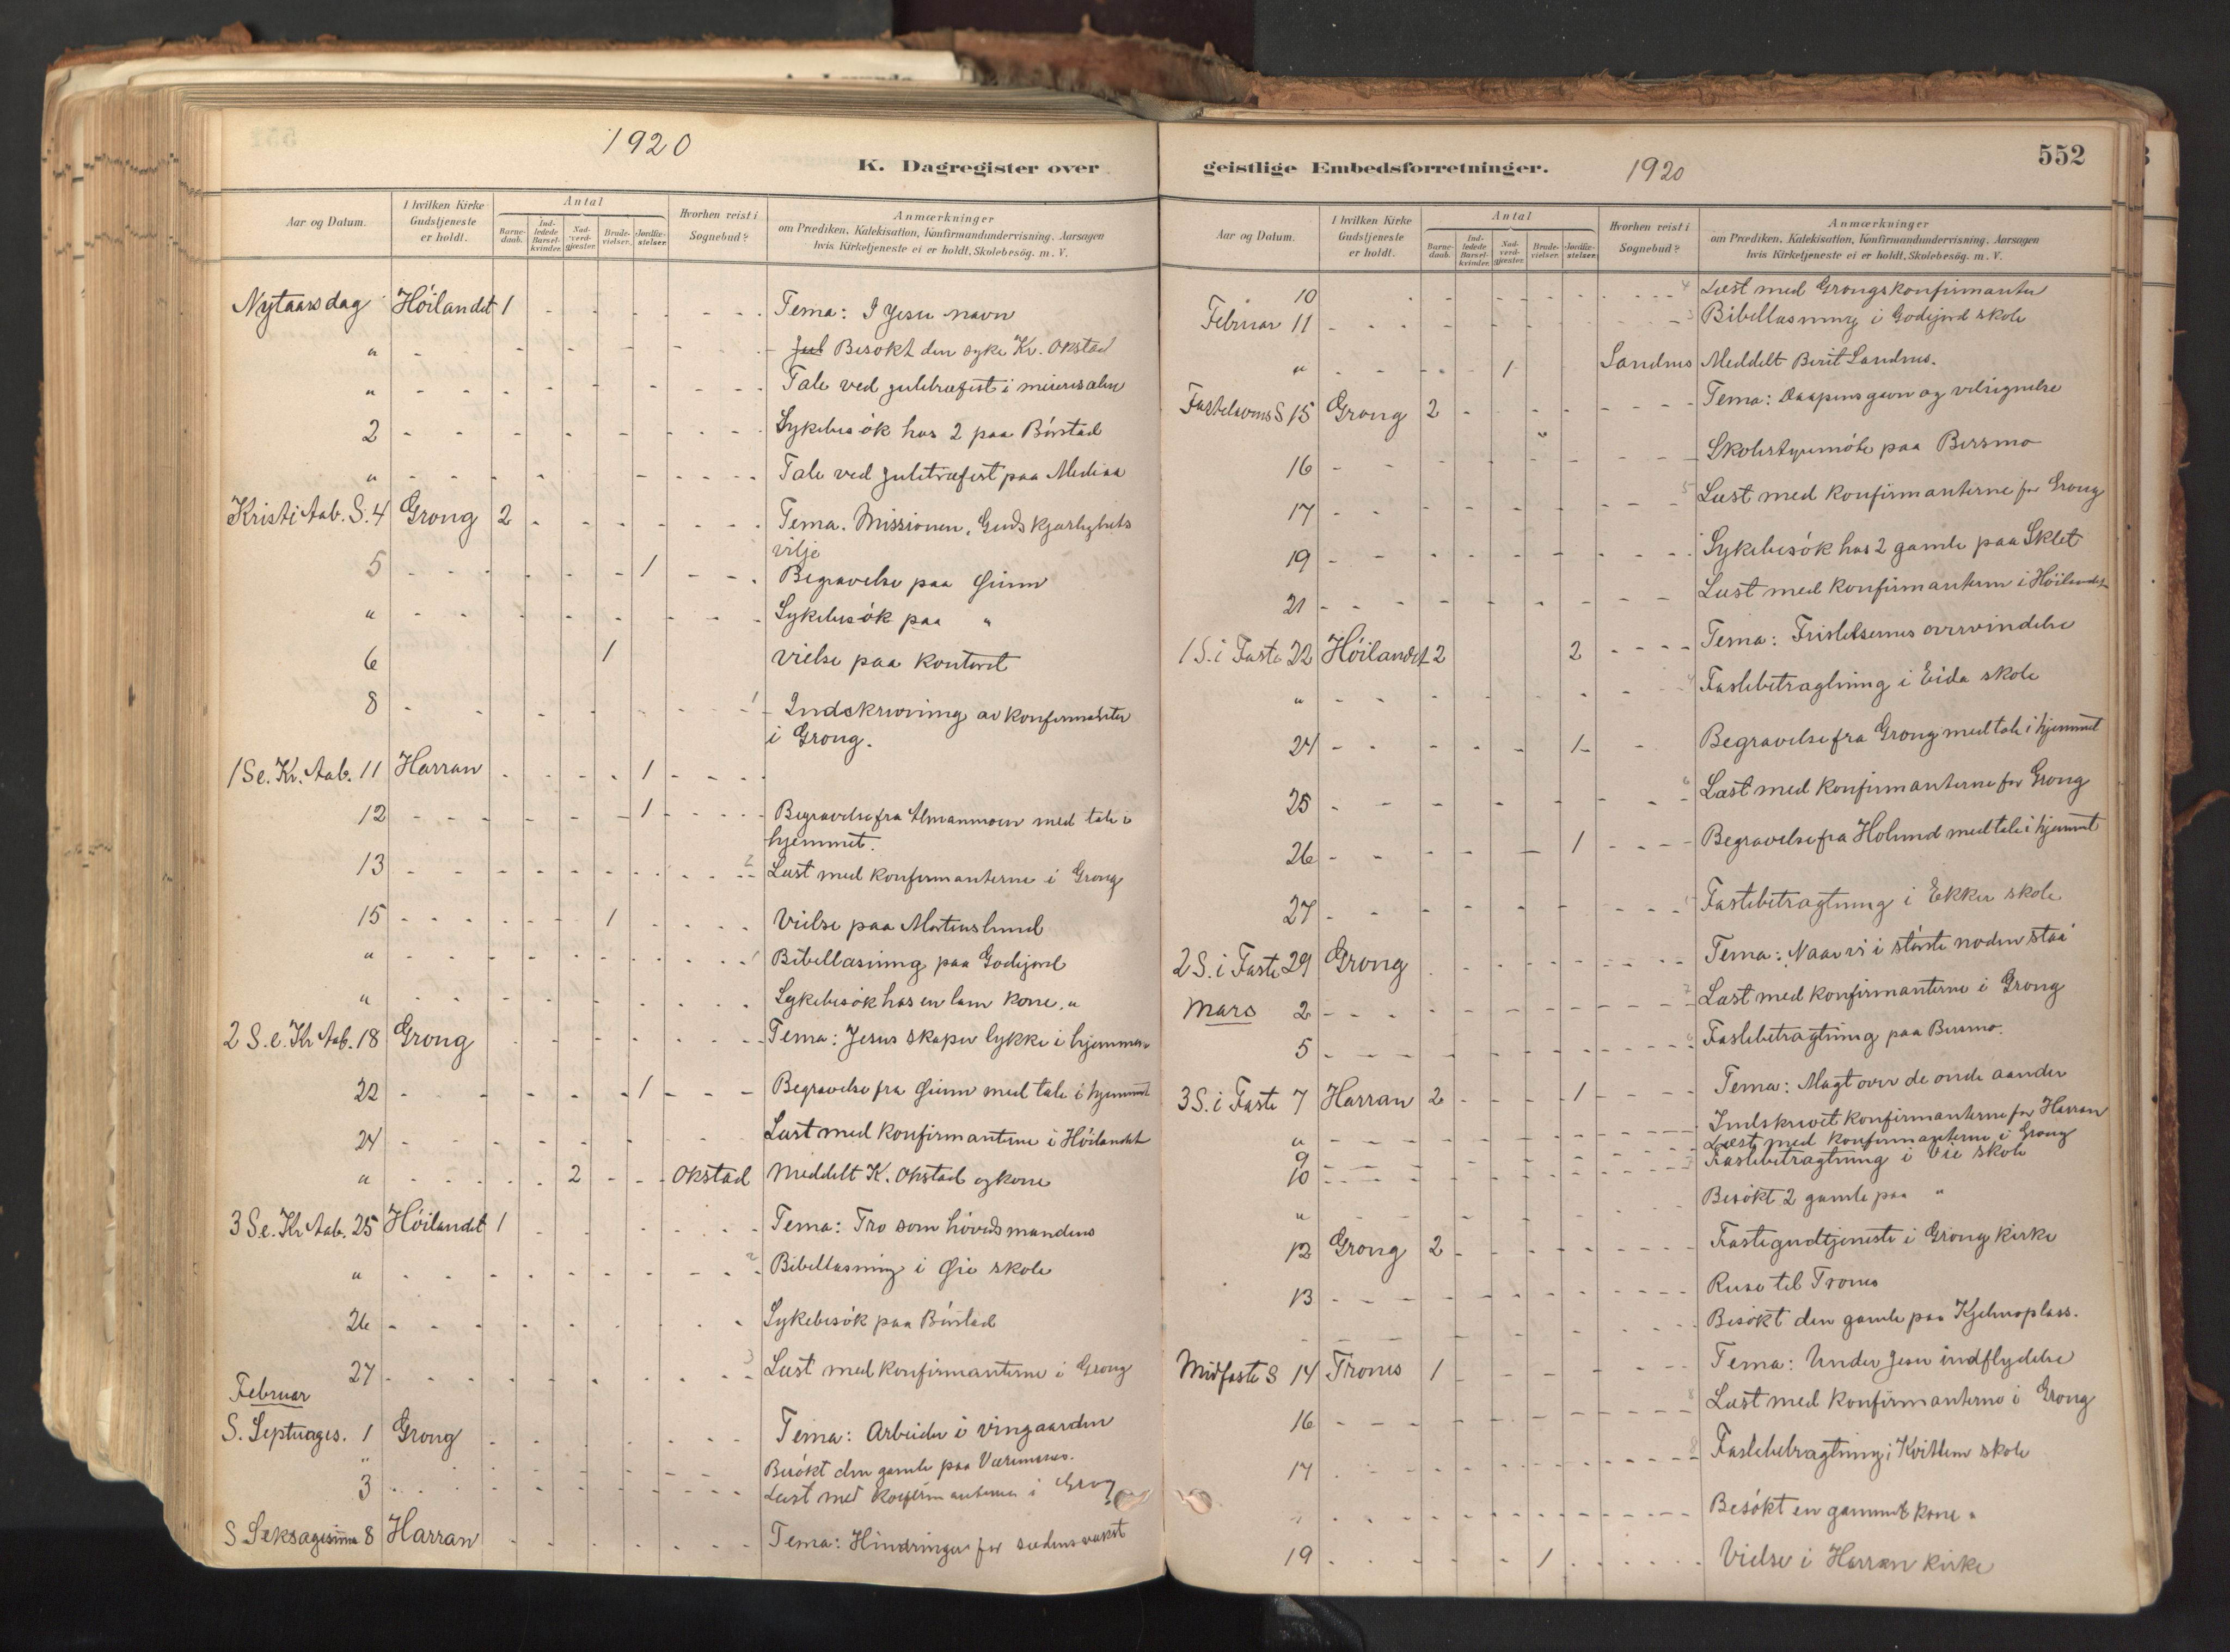 1920
K. Dagregister over
Aar og Datum.
I hvilken Kirke Gudstjeneste er holdt.
Antal
Barne-daab.
Ind-ledede Barsel-kvinder.
Nad-verd-gjæster.
Brude-vielser.
Jordfæ-stelser.
Hvorhen reist i Sognebud?
Anmærkninger
om Prædiken, Katekisation, Konfirmandundervisning, Aarsagen
hvis Kirketjeneste ei er holdt, Skolebesøg. m. V.
Nytaarsdag Höilandet 1 Tema: I Jesu navn
" Besökt den syke Kr. Okstad
" Tale ved juletræfest i
2 Sykebesök hos 2 paa Börstad
" Tale ved juletræfest paa Mediaa
Kristi Aab. S. 4 Grong 2 Tema. Missionen, Guds kjærlighets
vilje
5 1 Begravelse paa Gjinn
" Sykebesök paa "
6 1 Vielse paa kontoret
8 1 Indskrivning av konfirmanter
i Grong.
1 S e. Kr. Aab. 11 Harran 1
12 1 Begravelse fra med tale i
hjemmet.
13 2 Læst med konfirmanterne i Grong
15 1 Vielse paa Mortenslund
" 1 Bibellæsning paa Godejord
" Sykebesök hos en lam kone "
2 S. e. Kr Aab. 18 Grong Tema: Jesus skaper lykke i hjemmen
22 1 Begravelse fra Gjinn med tale i hjemmet
24 Læst med konfirmanterne i Höilandet
" 2 Okstad Meddelt K. Okstad og kone
3 S e. Kr Aab. 25 Höilandet 1 Tema: Tro som hövedsmandens
" 2 Bibellæsning i Gie skole
26 Sykebesök paa Börstad
27 3 Læst med konfirmanterne i Grong
Februar
S. Septuages. 1 Grong Tema: Arbeider i vingaarden
" Besökt den gamle paaVærumsnes.
3 Læst med konfirmanterne i Grong
S Seksagesima 8 Harran Tema: Hindringer for sædens vækst
552
geistlige Embedsforretninger.
1920
Aar og Datum.
I hvilken Kirke Gudstjeneste er holdt.
Antal
Barne-daab.
Ind-ledede Barsel-kvinder.
Nad-verd-gjæster.
Brude-vielser.
Jordfæ-stelser.
Hvorhen reist i Sognebud?
Anmærkninger
om Prædiken, Katekisation, Konfirmandundervisning, Aarsagen
hvis Kirketjeneste ei er holdt, Skolebesøg. m. V.
10 4 Læst med Grongs konfirmanter
Februar 11 3 Bibellæsning i Godejord skole
" 1 Sandnes Meddelt Berit Sandnes.
Fastelavns S 15 Grong 2 Tema: Daapens gavn og velsignelse
16 Skolestyremöte paa Bersmo
17 5 Læst med konfirmanterne for Grong
19 Sykebesök hos 2 gamle paa Sklet
21 Læst med konfirmanterne i Höilandet
1 S. i Faste 22 Höilandet 2 2 Tema: Fristelsernes overvindelse
" 4 Fastebetragtning i Eida skole
24 1 Begravelse fra Grong med tale i hjemmet
25 6 Læst med konfirmanterne for Grong
26 1 Begravelse fra Holund med tale i hjemmet
27 5 Fastebetragtning i Ekker skole
2 S. i Faste 29 Grong Tema: Naar vi i störste noden staa
Mars 2 7 Læst med konfirmanterne i Grong
5 6 Fastebetragtning paa Bersmo.
3 S. i Faste 7 Harran 2 1 Tema: Magt over de onde aander
" Indskrevet konfirmanterne for Harran
9 Læst med konfirmanterne i Grong
10 7 Fastebetragtning i Vie skole
" Besökt 2 gamle paa "
12 Grong 2 Fastegudtjeneste i Grong kirke
13 Reise til Trones
Besökt den gamle paa Kjelmoplass.
Midfaste S 14 Trones 1 Tema: Under Jesu indflydelse
16 8 Læst med konfirmanterne i Grong
17 8 Fastebetragtning i Kvitlem skole
" Besökt en gammel kone "
19 1 Vielse i Harran kirke